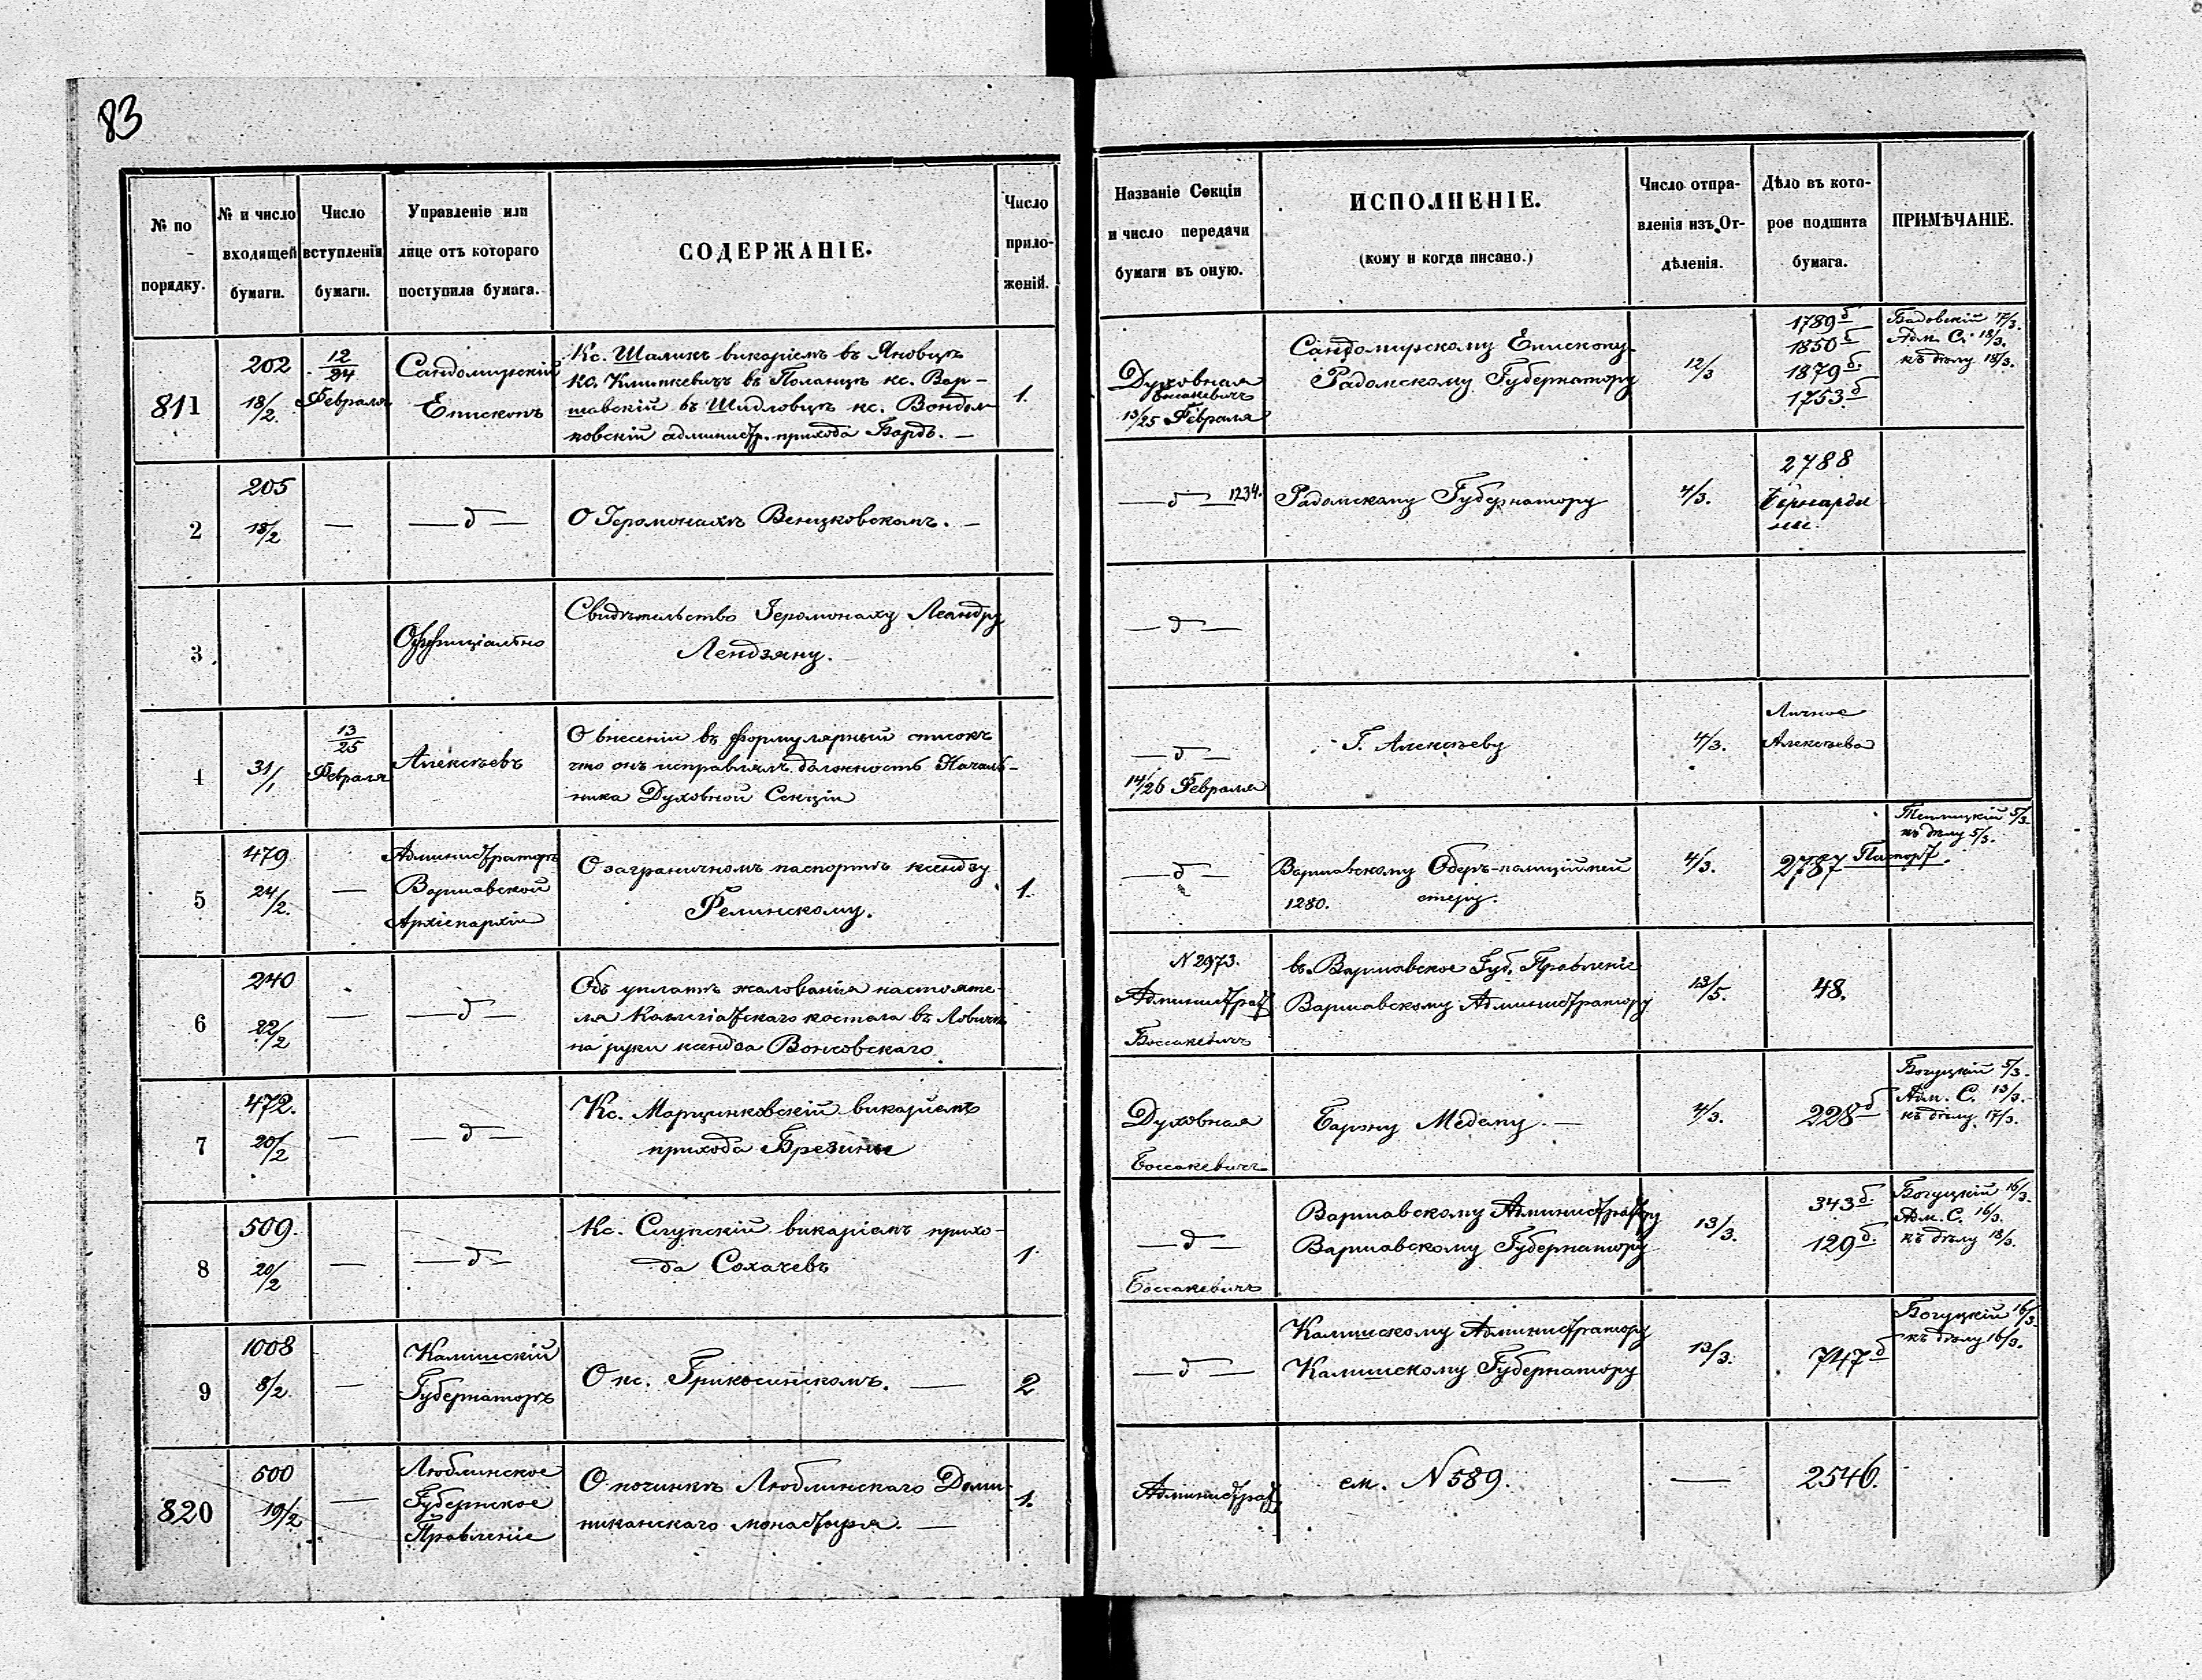 83
№ по порядку.
№ и число входящей бумаги.
Число вступленія бумаги.
Управленіе или лице отъ котораго поступила бумага.
СОДЕРЖАНІЕ.
Число приложеній.
Названіе Секціи и число передачи бумаги въ оную.
ИСПОЛНЕНІЕ.
(кому и когда писано.)
Число отправленія изъ Отдѣленія.
Дѣло въ которое подшита бумага.
ПРИМѢЧАНІЕ.
811
202
18/2.
12/24
Февраля
Сандомирскій
Епископъ
Кс. Шаликъ викаріемъ въ Яновцѣ
кс. Климкевичъ въ Поланцѣ кс. Вар-
шавскій въ Шидловцѣ кс.
ковскій администр. прихода
1.
Духовная
13/25 Февраля
Сандомирскому Епископу
Радомскому Губернатору
12/3
1789 б
1850 б
1879 б
1253 б
17/3.
Адм. С. 18/3.
къ дѣлу 18/3.
2
205
18/2
—
— д —
О Іеромонахѣ Венцковскомъ. —
— д — 1234.
Радомскому Губернатору
4/3.
2788
Бернарди
3
Оффиціально
Свидѣтельство Іеромонаху Леандру
Лендзяну.
— д —
4
31/1
13/25
Февраля
Алексѣевъ
О внесеніи въ формулярный списокъ
что онъ исправлялъ должность Началь-
ника Духовной Секціи
— д —
14/26 Февраля
Г. Алексѣеву
4/3.
Личное
Алексѣева
5
479
24/2.
—
Администраторъ
Варшавской
Архіепархіи
О заграничномъ паспортѣ ксендзу
Фелинскому.
1.
— д —
Варшавскому Оберъ-полиціймей
стеру.
1280.
4/3.
2787
5/3
къ дѣлу 5/3.
6
240
22/2
—
— д —
Объ уплатѣ жалованія настояте-
ля Коллегіатскаго костела въ Ловичѣ
на руки ксендза Вонсовскаго
N 2973.
Администрат
Боссакевичъ
въ Варшавское Губ. Правленіе
Варшавскому Администратору
13/5.
48.
7
472.
20/2
—
— д —
Кс. Марцинковскій викаріемъ
прихода Брезины
Духовная
Боссакевичъ
Барону Медему. —
4/3.
228 б
Богуцкій 5/3.
Адм. С. 13/3.
къ дѣлу 17/3.
8
509.
20/2
—
— д —
Кс. Слупскій викаріемъ прихо-
да Сохачевъ
1.
— д —
Боссакевичъ
Варшавскому Администратору
Варшавскому Губернатору
13/3.
343 б.
129 б.
Богуцкій 16/3.
Адм. С. 16/3.
къ дѣлу 18/3.
9
1008
8/2
—
Калишскій
Губернаторъ
О кс. —
2
— д —
Калишскому Администратору
Калишскому Губернатору
13/3.
747 б
Богуцкій 16/3.
къ дѣлу 16/3.
820
500
19/2
—
Люблинское
Губернское
Правленіе
О починкѣ Люблинскаго Доми-
никанскаго монастыря. —
1.
Администрат
см. N 589.
—
2546.